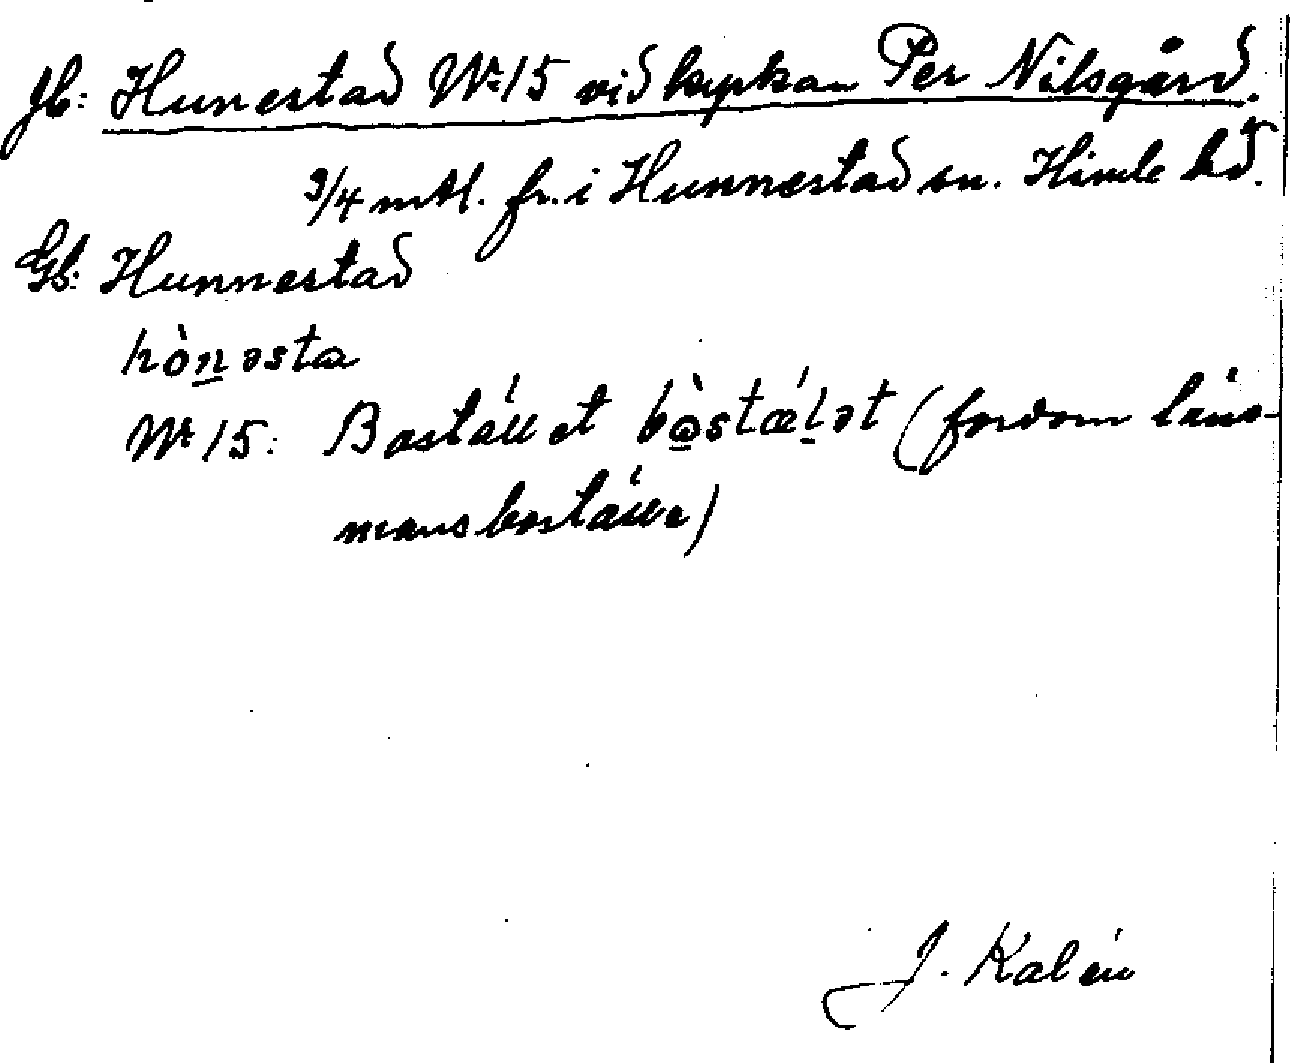 Jb: Hunestad Nr 15 vid kyrkan Per Nilsgård.
3/4 mtl. fr. i Hunnestad sn. Himle hd.
Gb: Hunnestad
hò̀nəsta
Nr 15: Bostället bòstǽlət (fordom läns-
mansboställe)
J. Kalén